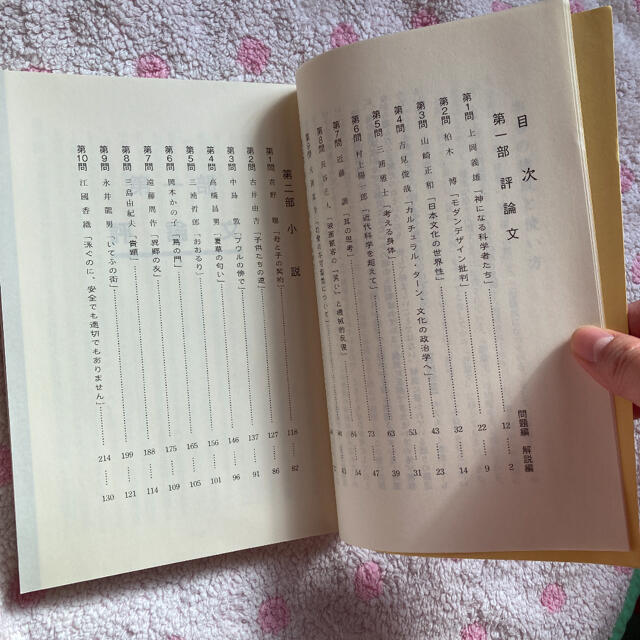 目次
問題編 解説編
第一部 評論文
第1問 上岡義雄「神になる科学者たち」 12 2
第2問 柏木 博「モダンデザイン批判」 22 9
第3問 山崎正和「日本文化の世界性」 32 14
第4問 吉見俊哉「カルチュラル・ターン、文化の政治学へ」 43 23
第5問 三浦雅士「考える身体」 53 31
第6問 村上陽一郎「近代科学を超えて」 63 39
第7問 近藤 譲「耳の思考」 73 47
第8問 長谷正人「映画観客の「笑い」と機械的反復」 84 54
第二部 小説
第1問 「母と子の契約」 118 82
第2問 古井由吉「子供たちの道」 127 86
第3問 中島 敦「プウルの傍で」 137 91
第4問 高橋昌男「夏草の匂い」 146 94
第5問 三浦哲郎「おおるり」 156 101
第6問 岡本かの子「雛の門」 165 105
第7問 遠藤周作「異郷の友」 175 109
第8問 三島由紀夫「貴顕」 188 114
第9問 永井龍男「いてふの街」 199 121
第10問 江國香織「泳ぐのに、安全でも適切でもありません」 214 130